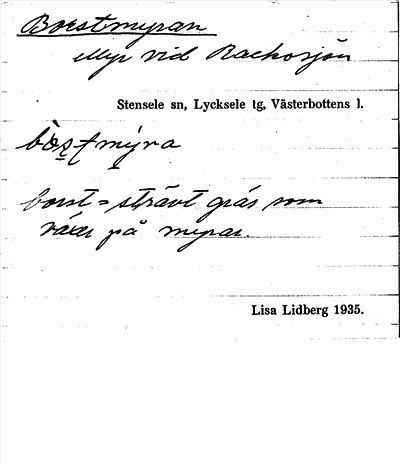 Borstmyran
Myr vid Rackosjön
Stensele sn, Lycksele tg, Västerbottens l.
bòṣt mýra
borst = strävt gräs som
växer på myrar.
Lisa Lidberg 1935.